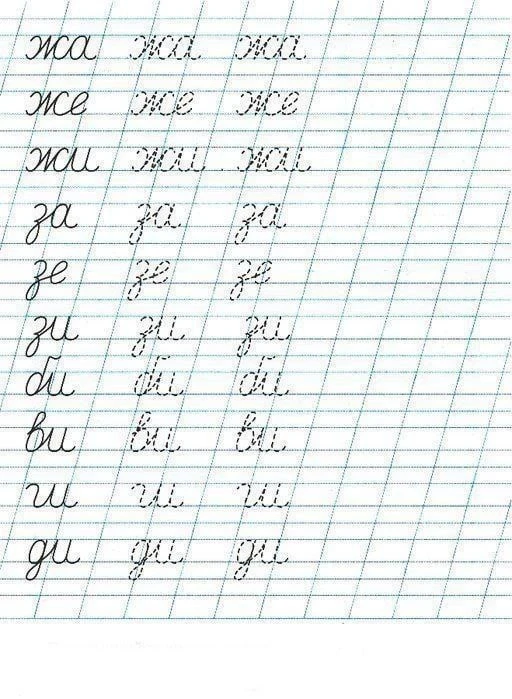 жа жа жа
же же же
жи жи жи
за за за
зе зе зе
зи зи зи
би би би
ви ви ви
ги ги ги
ди ди ди